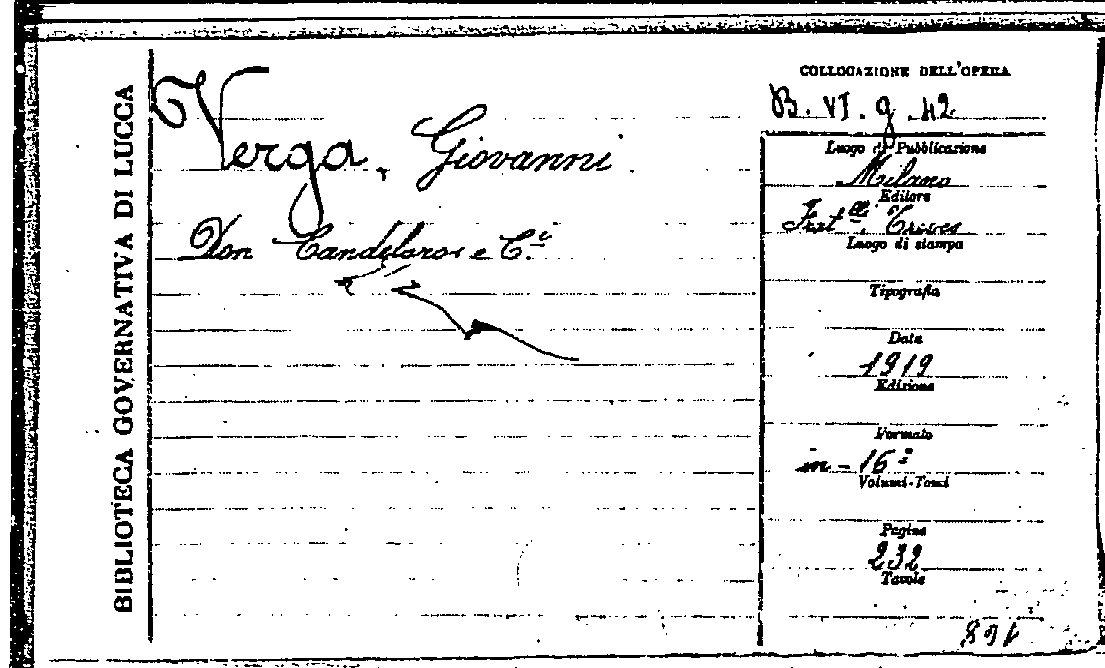 BIBLIOTECA GOVERNATIVA DI LUCCA
Verga, Giovanni
Don Candeloro e C.i
COLLOCAZIONE DELL'OPERA
B. VI. g. 42
Luogo di Pubblicazione
Milano
Editore
Frat.lli Treves
Luogo di stampa
Tipografia
Data
1919
Edizione
Formato
in-16°
Volumi-Tomi
Pagine
232
Tavole